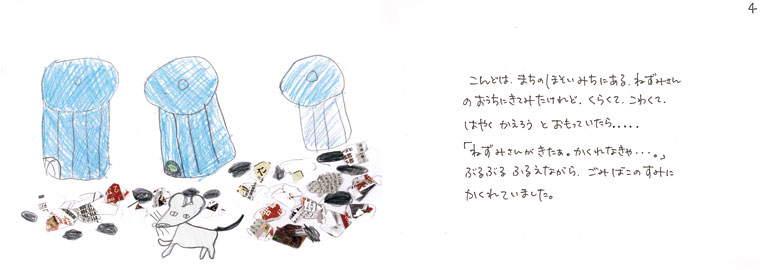 4
こんどは、まちのほそいみちにある、ねずみさん
のおうちにきてみたけれど、くらくて、こわくて、
はやく かえろう と おもっていたら.....
「ねずみさんがきたぁ。かくれなきゃ・・・。」
ぶるぶる ふるえながら、ごみばこのすみに
かくれていました。